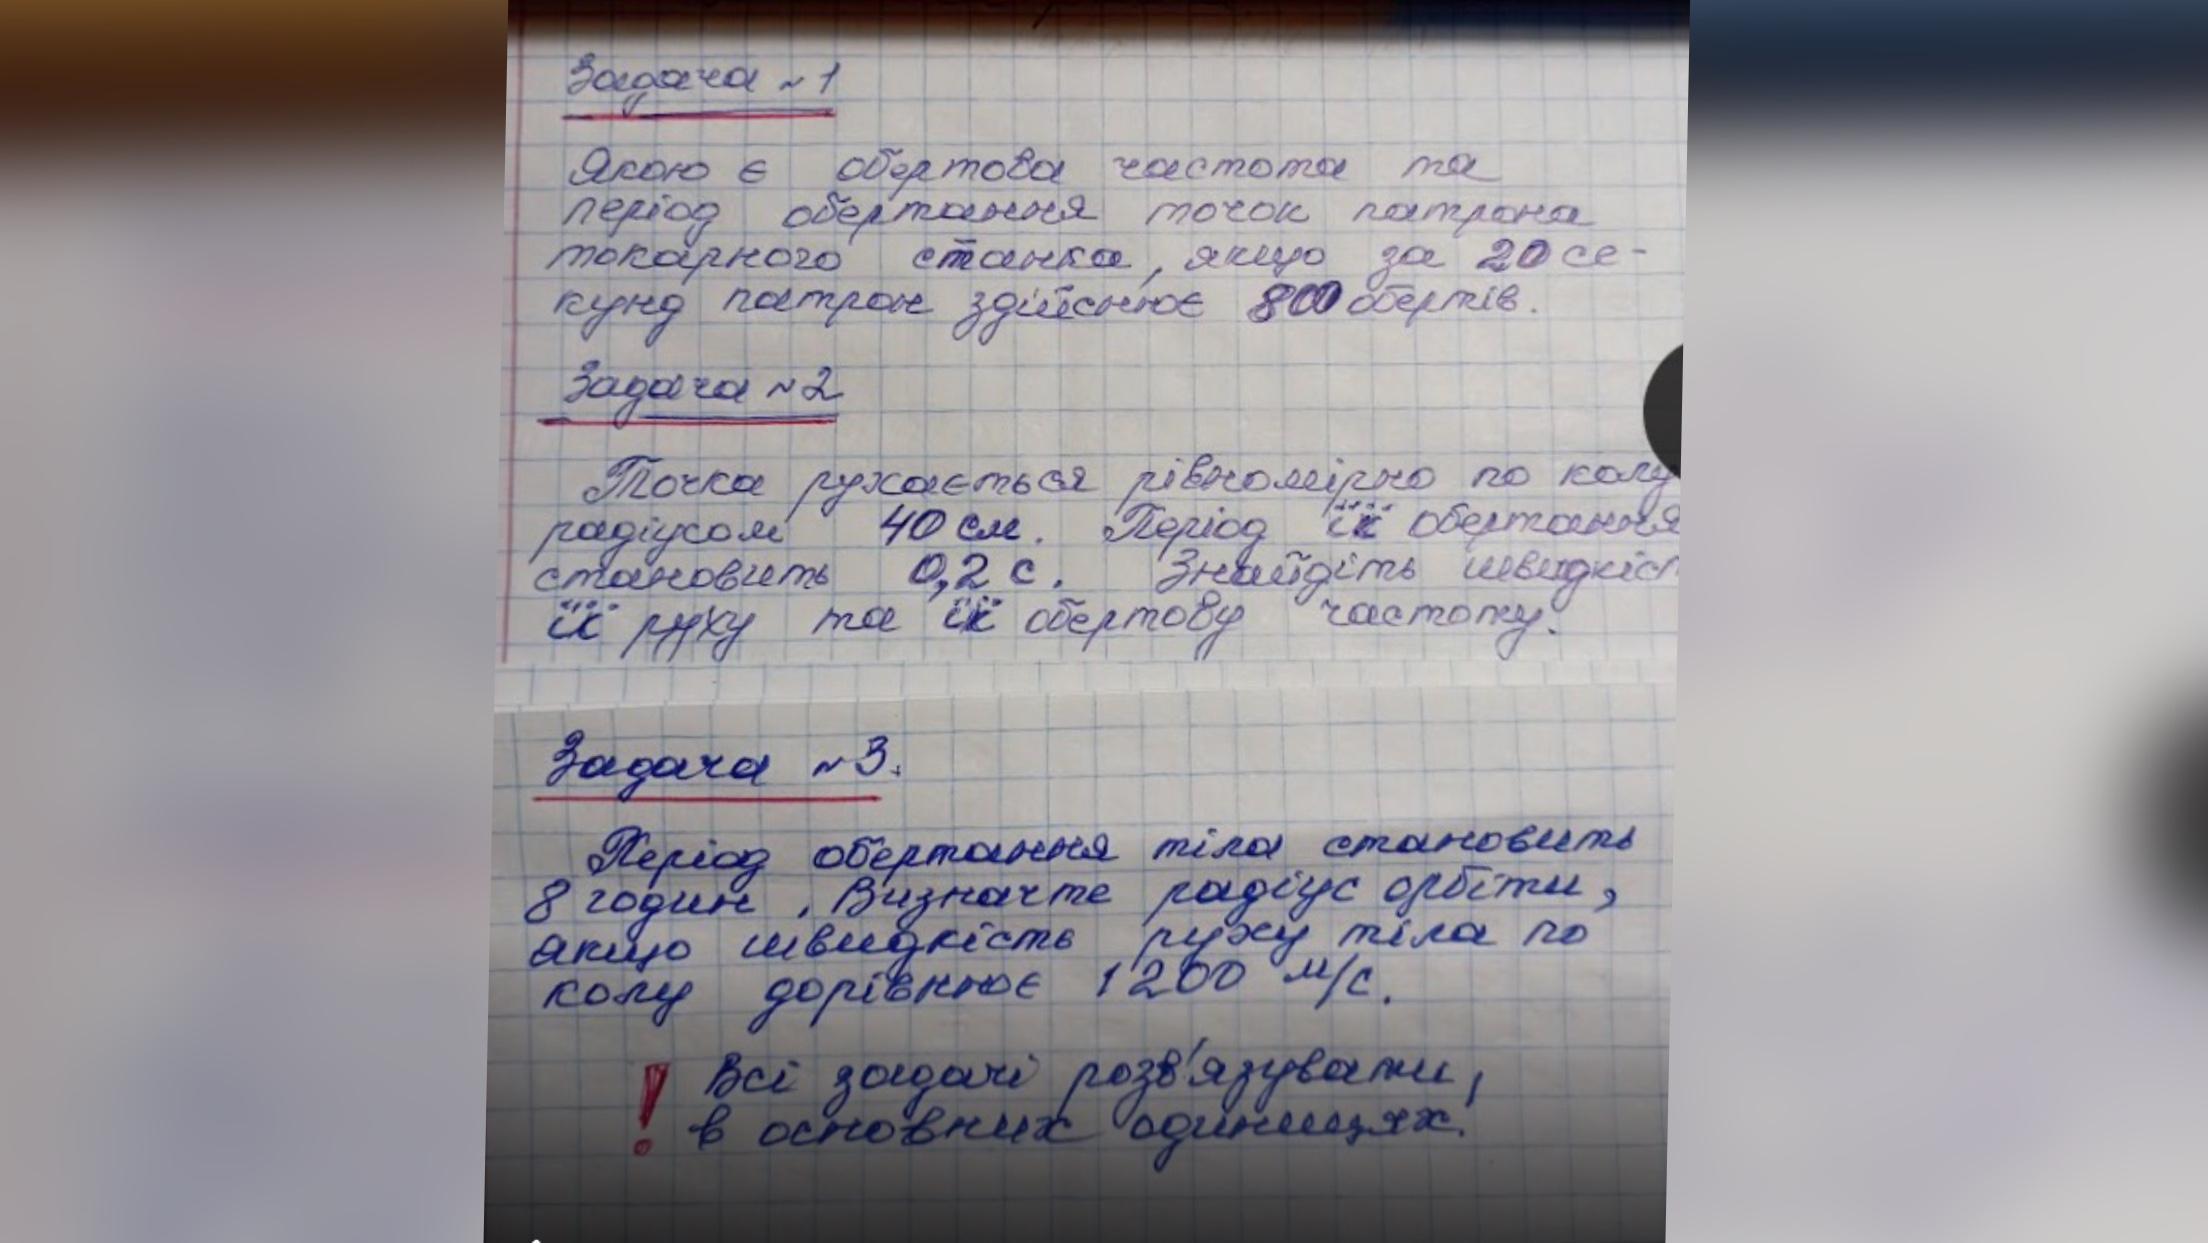 Задача ~1
Якою є обертова частота та
період обертання точок патрона
токарного станка, якщо за 20 се-
кунд патрон здійснює 800 обертів.
Задача ~2
Точка рухається рівномірно по колу
радіусом 40 см. Період її обертання
становить 0,2 с. Знайдіть швидкіст
її руху та її обертову частоту.
Задача ~3.
Період обертання тіла становить
8 годин. Визначте радіус орбіти,
якщо швидкість руху тіла по
колу дорівнює 1200 м/с.
! Всі задачі розв'язувати,
в основних одиницях!